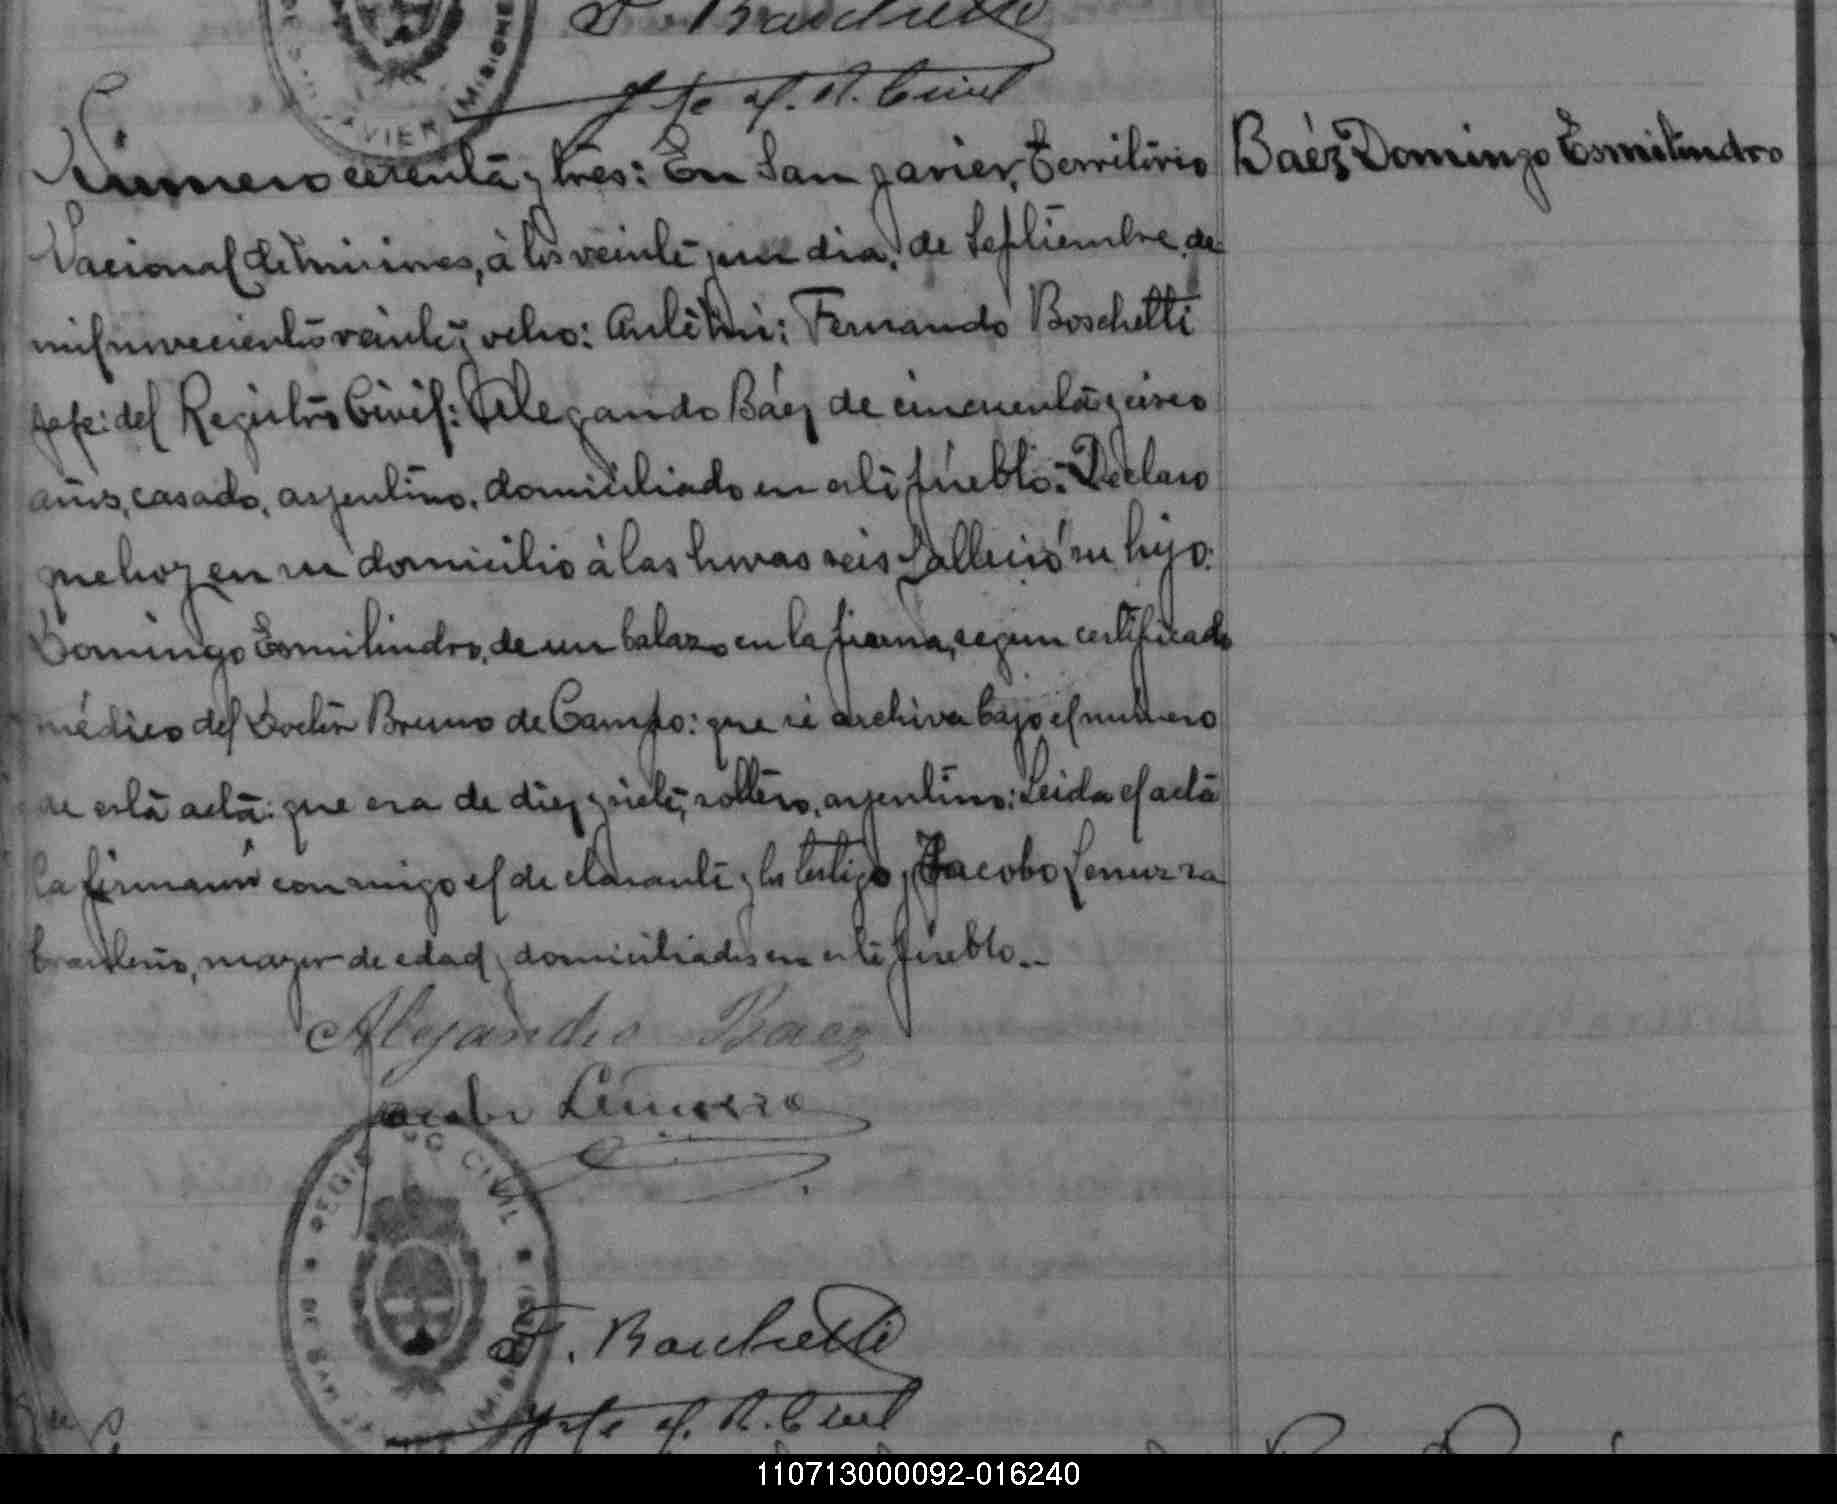 F. Boschetti
Jefe d. R. Civil
Baéz Domingo Esmilindro
Número cerenta y tres: En San Javier, Territorio
Nacional de Misiones, à los veinte y un dia, de Septiembre de
mil novecientos veinte y ocho: Ante mi: Fernando Boschetti
Jefe: del Registro Civil: Alegando Báez de cincuenta y cinco
años, casado, argentino, domiciliado en este pueblo: Declaro
que hoy en su domicilio à las horas seis falleció su hijo:
Domingo Esmilindro, de un balazo en la pierna, segun certificado
médico del Doctor Bruno de Campo: que se archiva bajo el número
de esta acta: que era de diez y siete, soltero, argentino: Leida el acta
la firmaron conmigo el declarante y los testigo, Jacobo
brasilero, mayor de edad y domiciliados en este pueblo..
Alejandro Baez
Jacobo
REGISTRO CIVIL
DE SAN JAVIER MISIONES
F. Boschetti
Jefe d. R. Civil
110713000092-016240